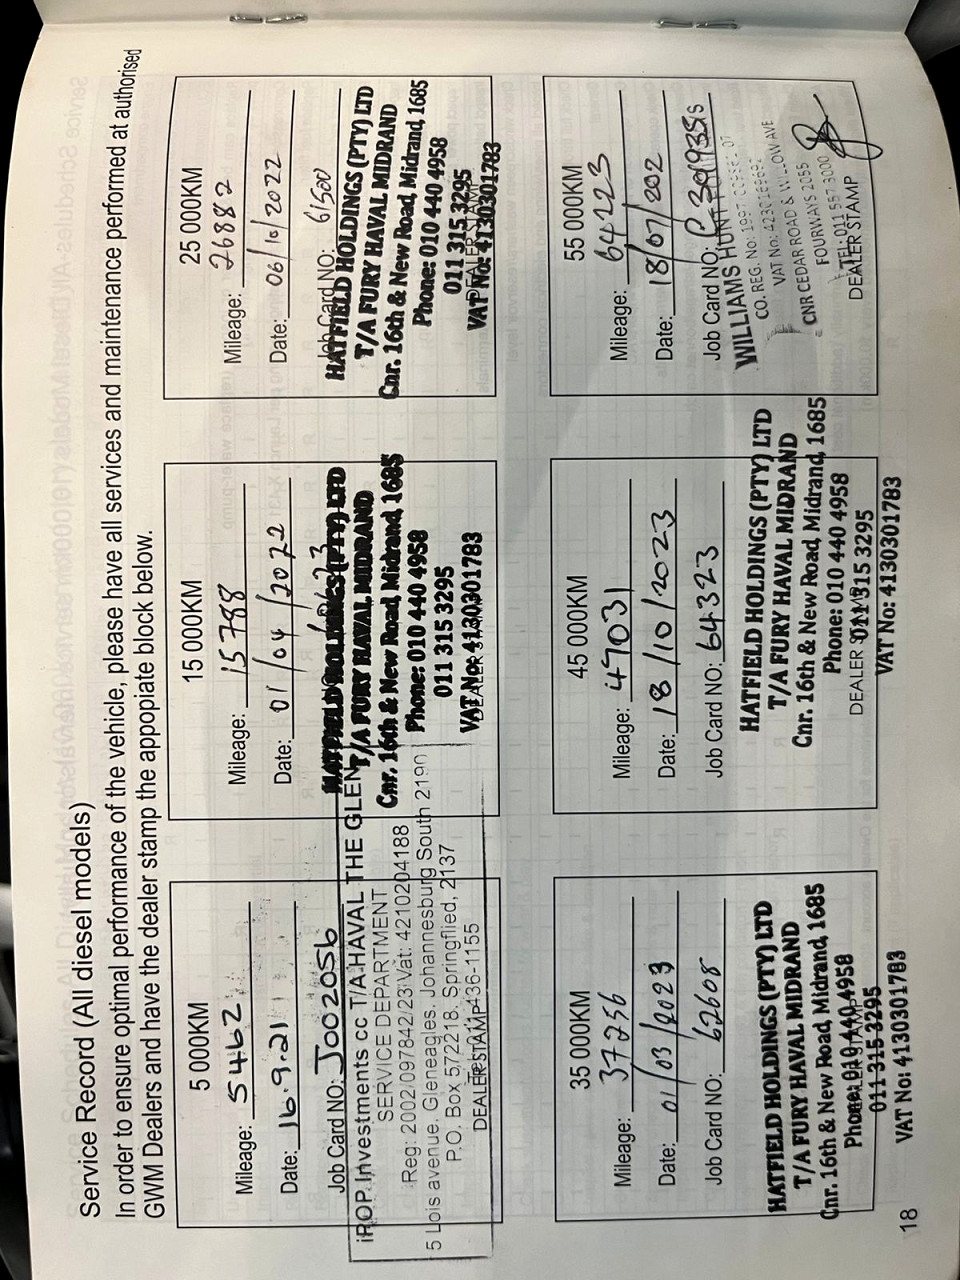 Service Record (All diesel models)
In order to ensure optimal performance of the vehicle, please have all services and maintenance performed at authorised
GWM Dealers and have the dealer stamp the appopiate block below.
5 000KM
Mileage: 5462
Date: 16.9.21
Job Card NO: J002056
iROP Investments cc T/A HAVAL THE GLEN
SERVICE DEPARTMENT
Reg: 2002/097842/23 Vat: 4210204188
5 Lois avenue. Gleneagles. Johannesburg South 2190
P.O. Box 572218. Springflied, 2137
Tel: 011-436-1155
DEALER STAMP
15 000KM
Mileage: 15788
Date: 01/04/2022
HATFIELD HOLDINGS (PTY) LTD
T/A FURY HAVAL MIDRAND
Cnr. 16th & New Road, Midrand, 1685
Phone: 010 440 4958
011 315 3295
VAT No: 4130301783
DEALER STAMP
25 000KM
Mileage: 26882
Date: 06/10/2022
Job Card NO: 61500
HATFIELD HOLDINGS (PTY) LTD
T/A FURY HAVAL MIDRAND
Cnr. 16th & New Road, Midrand, 1685
Phone: 010 440 4958
011 315 3295
VAT No: 4130301783
DEALER STAMP
35 000KM
Mileage: 37256
Date: 01/03/2023
Job Card NO: 62608
HATFIELD HOLDINGS (PTY) LTD
T/A FURY HAVAL MIDRAND
Cnr. 16th & New Road, Midrand, 1685
Phone: 010 440 4958
DEALER STAMP
011 315 3295
VAT No: 4130301783
45 000KM
Mileage: 47031
Date: 18/10/2023
Job Card NO: 64323
HATFIELD HOLDINGS (PTY) LTD
T/A FURY HAVAL MIDRAND
Cnr. 16th & New Road, Midrand, 1685
Phone: 010 440 4958
DEALER STAMP
011 315 3295
VAT No: 4130301783
55 000KM
Mileage: 64223
Date: 18/07/202
Job Card NO:
WILLIAMS HUNT
CO. REG. No: 1997
VAT No:
CNR CEDAR ROAD & WILLOW AVE
FOURWAYS 2055
TEL: 011 557 3000
DEALER STAMP
18